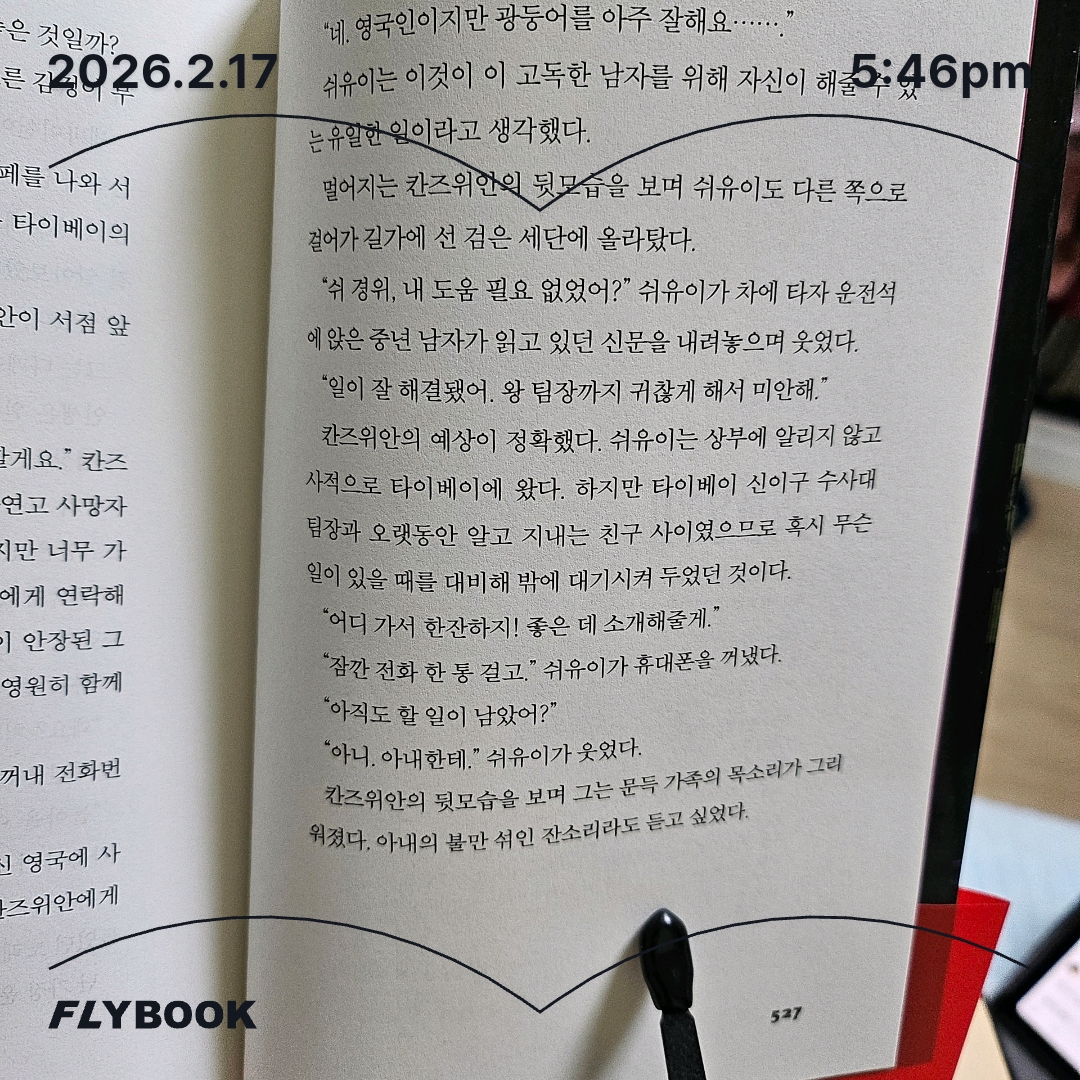 2026.2.17
5:46pm
은 것일까?
른 감정이
페를 나와 서
타이베이의
안이 서점 앞
할게요.” 칸즈
연고 사망자
지만 너무 가
에게 연락해
이 안장된 그
영원히 함께
꺼내 전화번
신 영국에 사
칸즈위안에게
“네. 영국인이지만 광둥어를 아주 잘해요…….”
쉬유이는 이것이 이 고독한 남자를 위해 자신이 해줄 수 있
는 유일한 일이라고 생각했다.
멀어지는 칸즈위안의 뒷모습을 보며 쉬유이도 다른 쪽으로
걸어가 길가에 선 검은 세단에 올라탔다.
“쉬 경위, 내 도움 필요 없었어?” 쉬유이가 차에 타자 운전석
에 앉은 중년 남자가 읽고 있던 신문을 내려놓으며 웃었다.
“일이 잘 해결됐어. 왕 팀장까지 귀찮게 해서 미안해.”
칸즈위안의 예상이 정확했다. 쉬유이는 상부에 알리지 않고
사적으로 타이베이에 왔다. 하지만 타이베이 신이구 수사대
팀장과 오랫동안 알고 지내는 친구 사이였으므로 혹시 무슨
일이 있을 때를 대비해 밖에 대기시켜 두었던 것이다.
“어디 가서 한잔하지! 좋은 데 소개해줄게.”
“잠깐 전화 한 통 걸고.” 쉬유이가 휴대폰을 꺼냈다.
“아직도 할 일이 남았어?”
“아니. 아내한테.” 쉬유이가 웃었다.
칸즈위안의 뒷모습을 보며 그는 문득 가족의 목소리가 그리
워졌다. 아내의 불만 섞인 잔소리라도 듣고 싶었다.
527
FLYBOOK